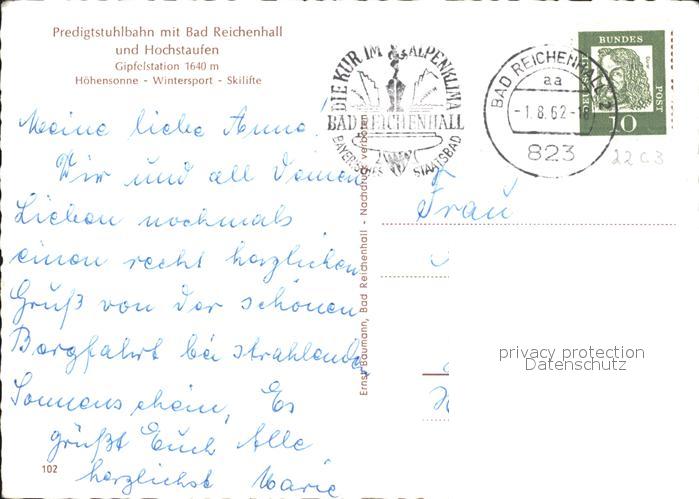 Predigtstuhlbahn mit Bad Reichenhall
und Hochstaufen
Gipfelstation 1640 m
Höhensonne - Wintersport - Skilifte
Meine liebe Anna!
Wir und all Deinen
Lieben nochmals
einen recht herzlichen
Gruß von der schönen
Bergfahrt bei strahlendem
Sonnenschein, Es
grüßt Euch Alle
herzlichst Marie
102
Ernst Baumann, Bad Reichenhall - Nachdruck verboten
DIE KUR IM ALPENKLIMA
BAD REICHENHALL
BAYERISCHES STAATSBAD
BAD REICHENHALL 2
aa
-1.8.62-18
823
DEUTSCHE
BUNDES
POST
10
2203
Frau
privacy protection
Datenschutz